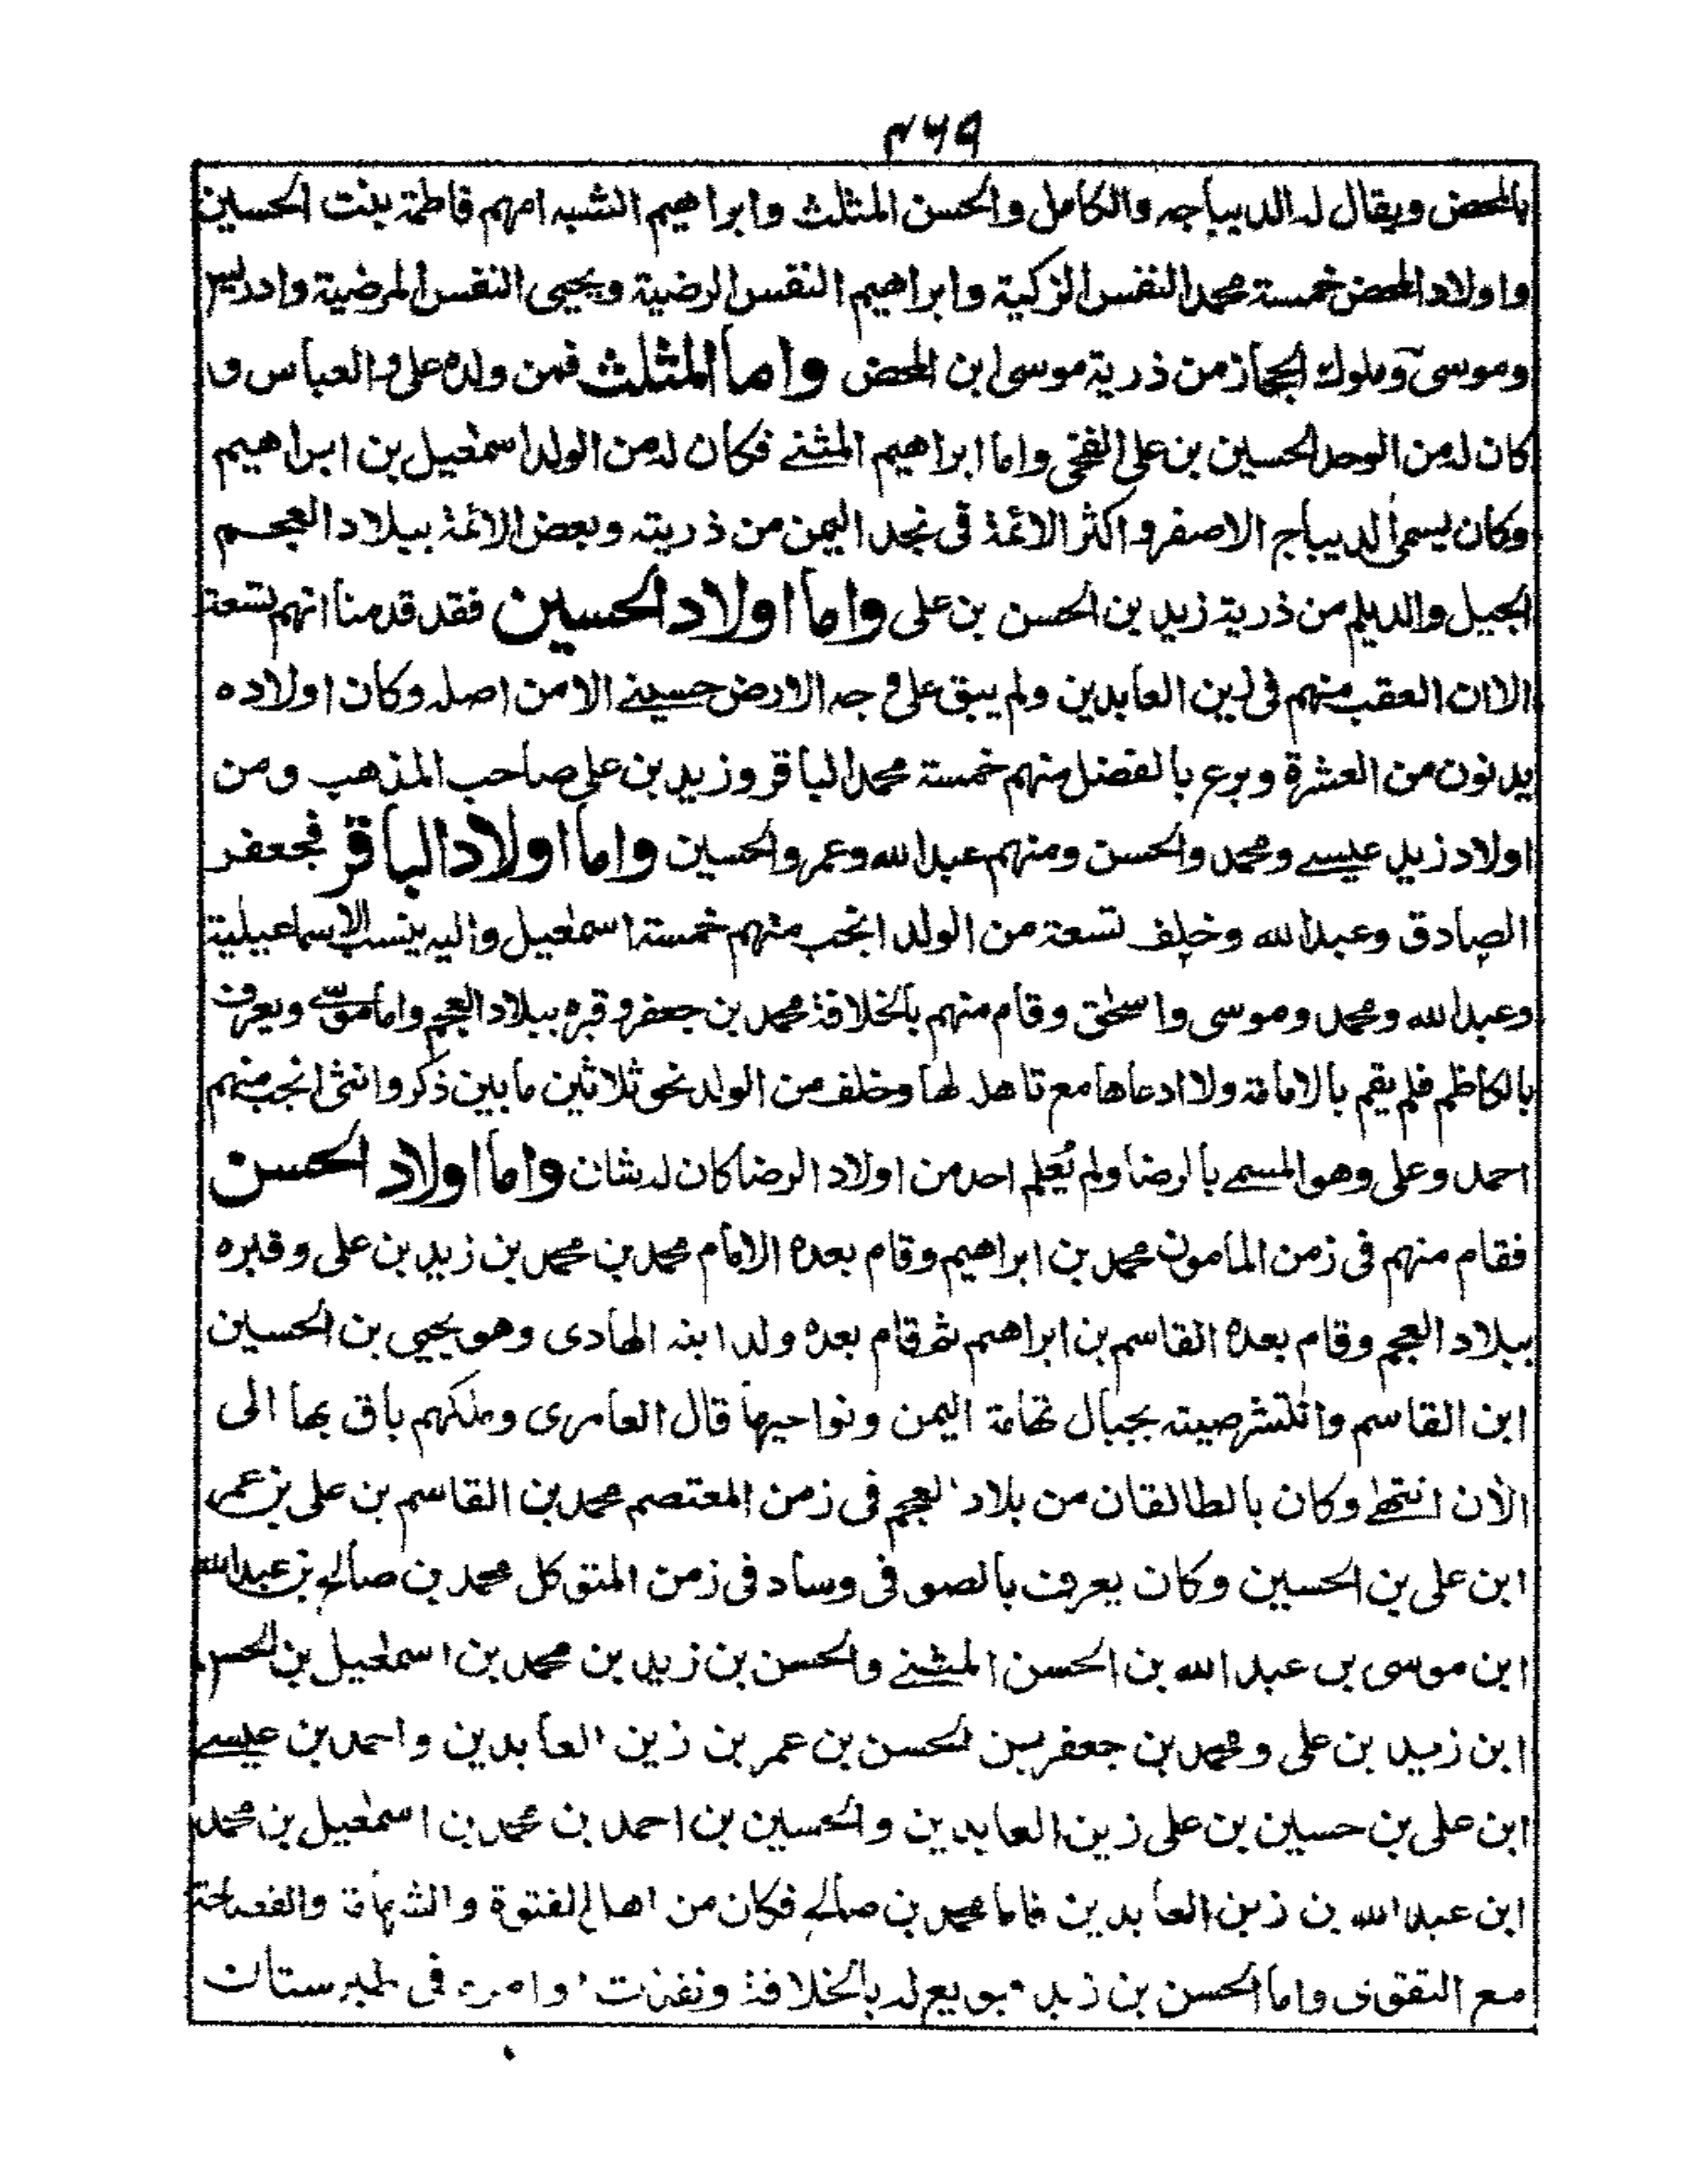 ٤٦٩
بالمحض ويقال له الديباجه والكامل والحسن المثلث وابراهيم الشبه امهم فاطمة بنت الحسين
واولاد المحض خمسة محمد النفس الزكية وابراهيم النفس الرضية ويحيى النفس المرضية وادريس
وموسى وملوك الحجاز من ذرية موسى ابن المحض واما المثلث فمن ولده على والعباس و
كان له من الوحد الحسين بن على الفخي واما ابراهيم المثنے فكان له من الولد اسمعيل بن ابراهيم
وكان يسمى الديباج الاصفر واكثر الائمة فى نجد اليمن من ذريته وبعض الائمة ببلاد العجم
الجيل والديلم من ذرية زيد بن الحسن بن على واما اولاد الحسين فقد قدمنا انهم تسعة
الا ان العقب منهم فى زين العابدين ولم يبق على وجه الارض حسينے الا من اصله وكان اولاده
يدنون من العشرة وبرع بالفضل منهم خمسة محمد الباقر وزيد بن على صاحب المذهب ومن
اولاد زيد عيسے ومحمد والحسن ومنهم عبد الله وعمر والحسين واما اولاد الباقر فجعفر
الصادق وعبد الله وخلف تسعة من الولد انجب منهم خمسة اسمعيل واليه ينسب الاسماعيلية
وعبد الله ومحمد وموسى واسحٰق وقام منهم بالخلافة محمد بن جعفر وقبره ببلاد العجم واما موسے ويعرف
بالكاظم فلم يقم بالامامة ولا ادعاها مع تاهله لها وخلف من الولد نحو ثلاثين ما بين ذكر وانثى انجب منهم
احمد وعلى وهو المسمے بالرضا ولم يُعلم احد من اولاد الرضا كان له شان واما اولاد الحسن
فقام منهم فى زمن المأمون محمد بن ابراهيم وقام بعده الامام محمد بن محمد بن زيد بن على وقبره
ببلاد العجم وقام بعده القاسم بن ابراهيم ثم قام بعده ولد ابنه الهادى وهو يحيى بن الحسين
ابن القاسم وانتشر صيته بجبال تهامة اليمن ونواحيها قال العامرى وملكهم باق بها الى
الآن انتهٰے وكان بالطالقان من بلاد العجم فى زمن المعتصم محمد بن القاسم بن على بن عمر
ابن على بن الحسين وكان يعرف بالصوفى وساد فى زمن المتوكل محمد بن صالح بن عبد الله
ابن موسى بن عبد الله بن الحسن المثنے والحسن بن زيد بن محمد بن اسمعيل بن الحسن
ابن زيد بن على ومحمد بن جعفر بن الحسن بن عمر بن زين العابدين واحمد بن عيسے
ابن على بن حسين بن على زين العابدين والحسين بن احمد بن محمد بن اسمعيل بن محمد
ابن عبد الله بن زين العابدين فاما محمد بن صالح فكان من اهل الفتوة والشهامة والفصاحة
مع التقوى واما الحسن بن زيد فبويع له بالخلافة ونفذت اوامره فى طبرستان